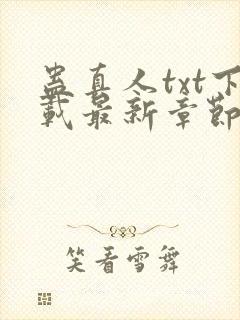 蛊真人txt下
载最新章节
笑看雪舞